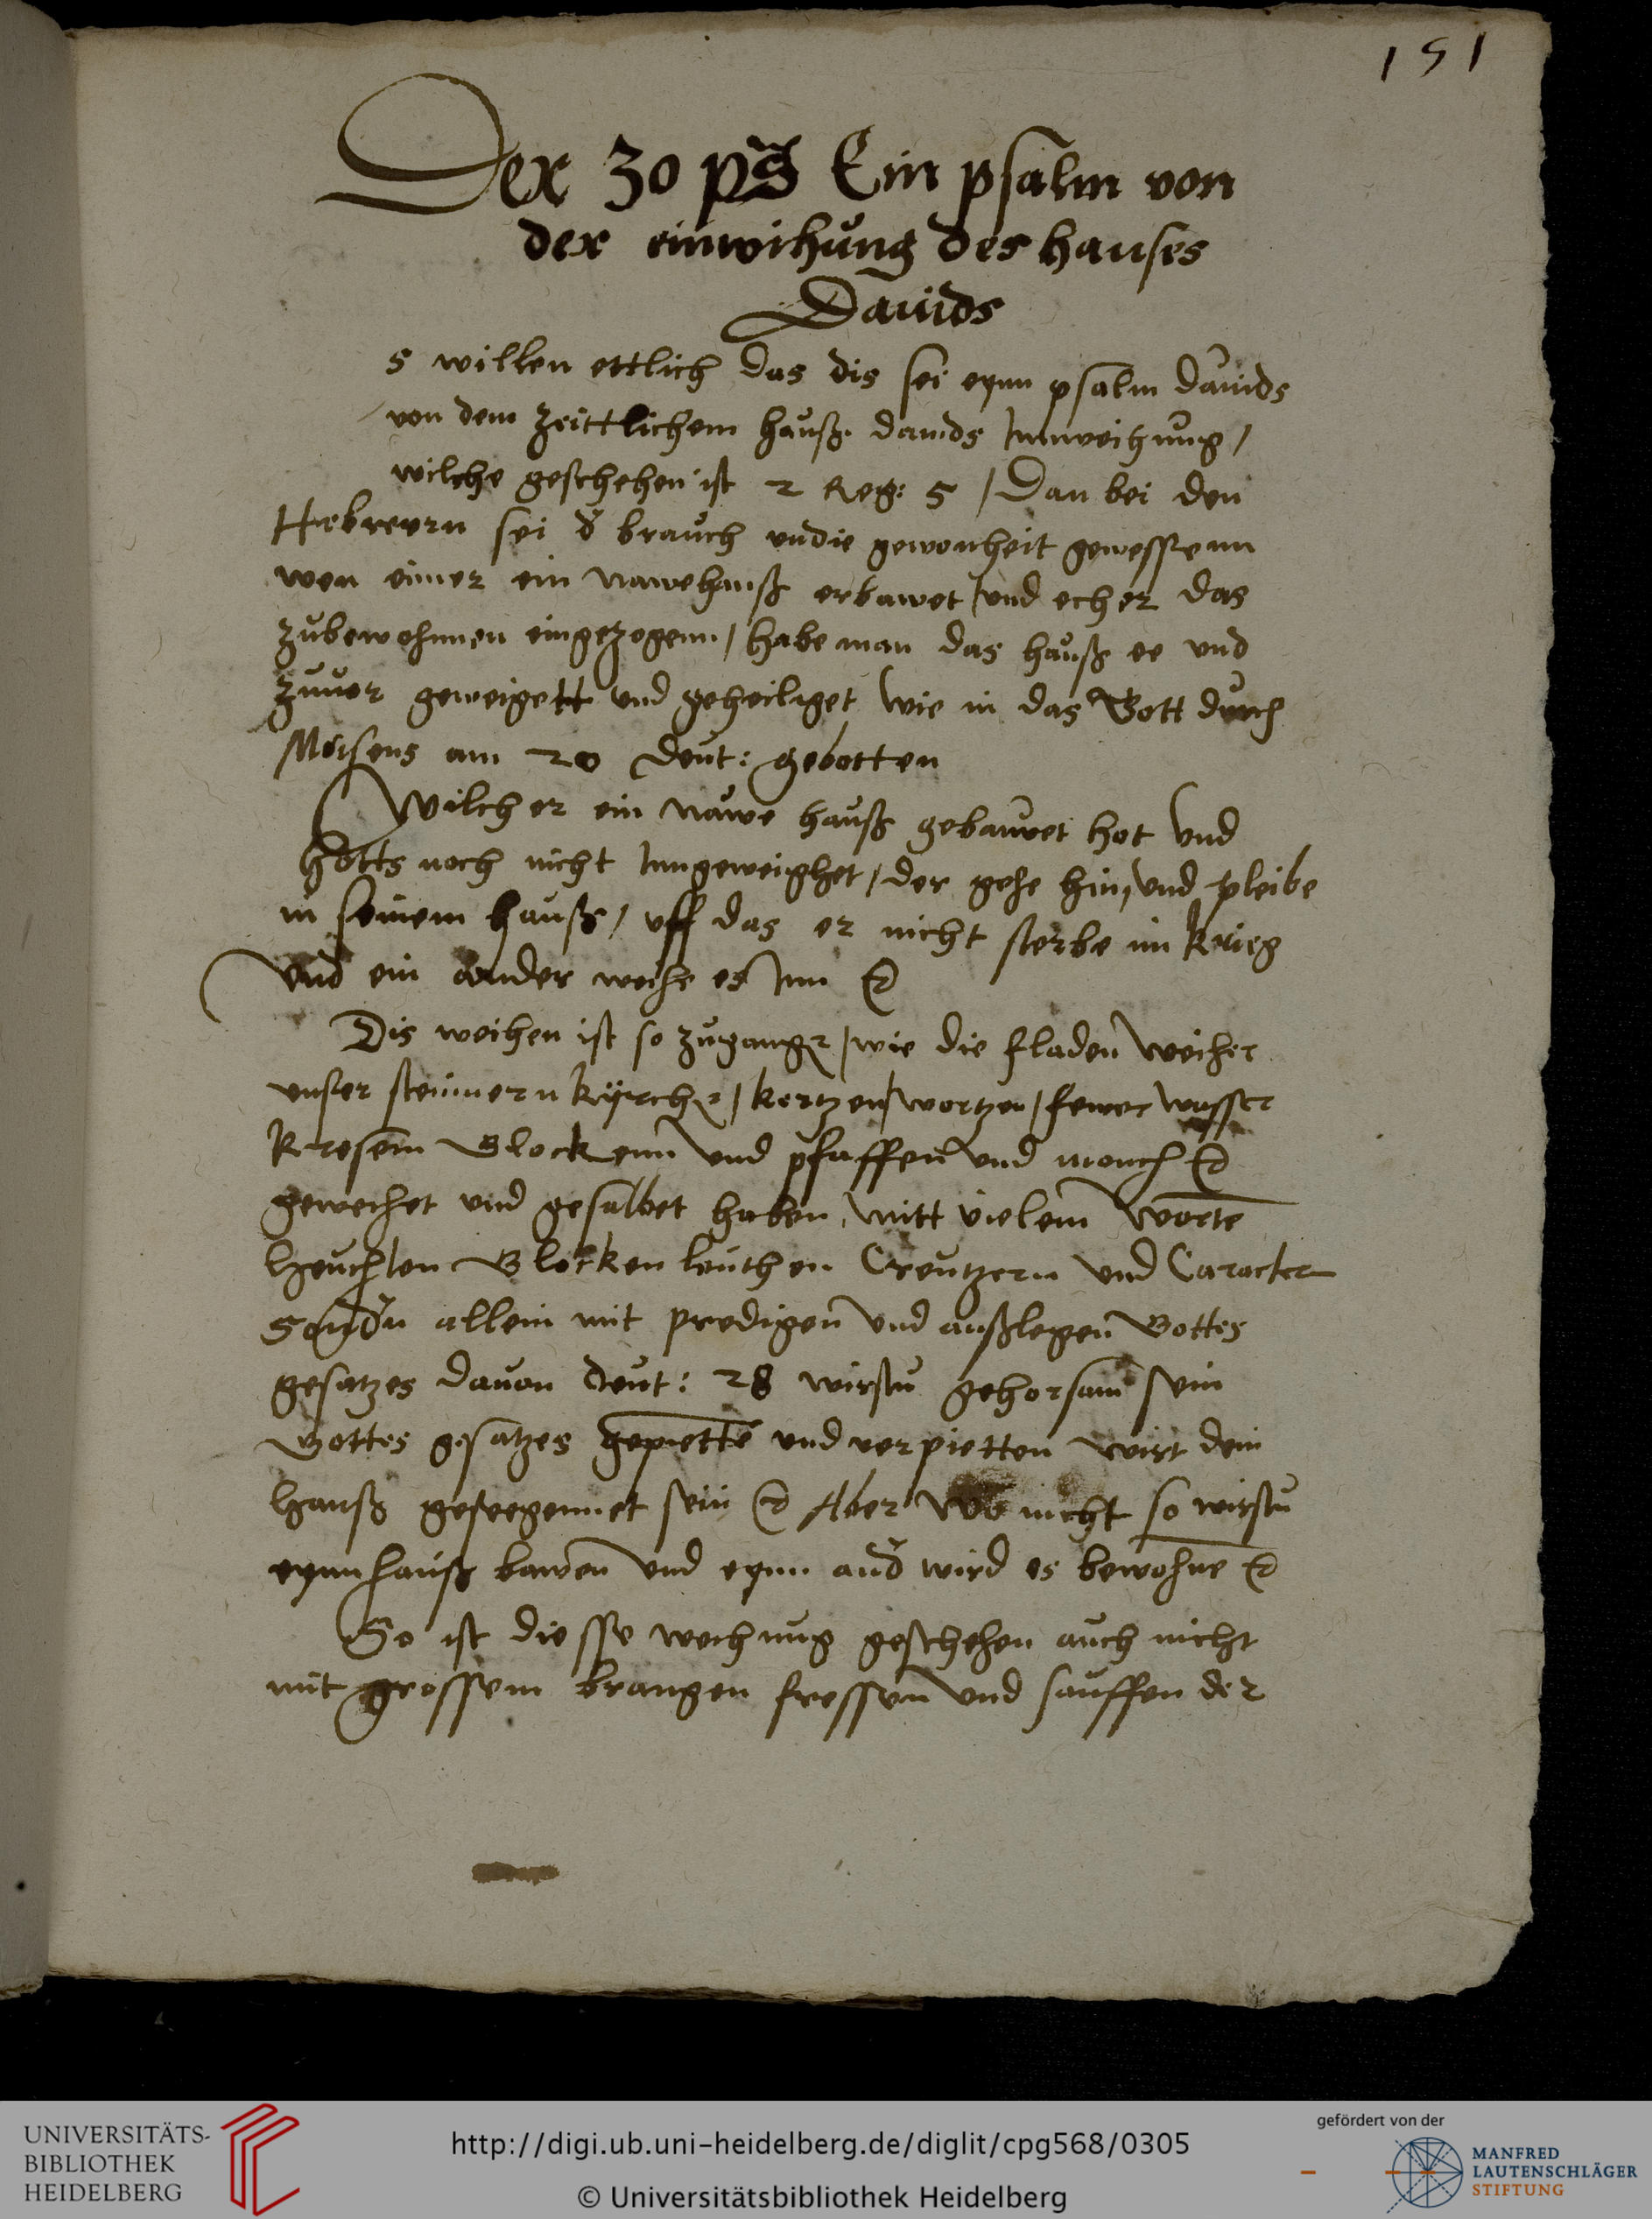 151
Der 30 ps Ein psalm von
der einwihung des hauses
Dauids
S willen ettlich das dis sei eynn psalm dauids
von dem zeittlichem hauß dauids Innweihung /
wilche geschehen ist 2 Reg: 5 / Dan bei den
Hebreern sei d brauch vndie gewonheit gewessenn
wen einner ein nawehauß erbawet / vnd ech er das
zubewohnnen eingezogenn / habe man das hauß ee vnd
zuuor geweigett vnd geheiliget wie in das Gott durch
Moisens am 20 deut: gebotten
Wilcher ein nawe hauß gebauwet hot vnd
hotts noch nicht Inngeweighet / der gehe hin, vnd pleibe
in seinem hauß / vff das er nicht sterbe im krieg
vnd ein ander weihe es Inn
Dis weihen ist so zugangen / wie die fladen weiher
vnser steinnern kyrchen / kertzen / wortzen / fewer wasser
Kresem Glockenn vnd pfaffen vnd monch
geweihet vnd gesalbet haben, mitt vielem worte
leuchten Glocken leuthen Creutzern vnd Caracter
Sondn allein mit predigen vnd außlegen Gottes
gesatzes dauon deut: 28 wirstu gehorsam sein
Gottes gesatzes gepiette vnd verpietten wirt dein
hauß geseegennet sein Aber wo nicht so wirstu
eynn hauß bawen vnd eynn and wird es bewohne
So ist diesse weihnug geschehen auch nicht
mit grossem brangen fressen vnd sauffen der
UNIVERSITÄTS-
BIBLIOTHEK
HEIDELBERG
http://digi.ub.uni-heidelberg.de/diglit/cpg568/0305
© Universitätsbibliothek Heidelberg
gefördert von der
MANFRED
LAUTENSCHLÄGER
STIFTUNG